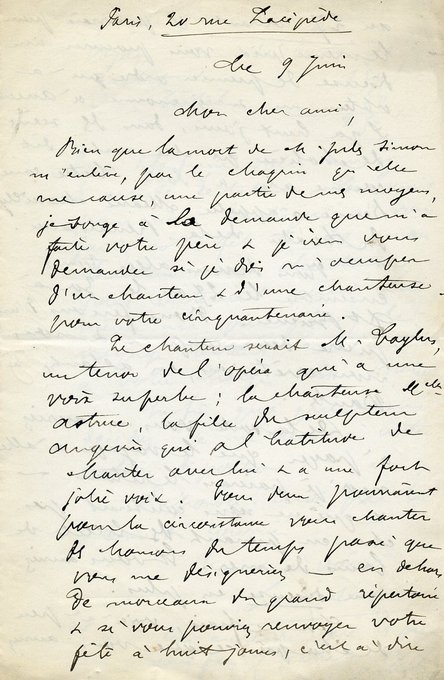 Paris, 20 rue Lacépède
Le 9 Juin
Mon cher ami,
Bien que la mort de M. Jules Simon
m'enlève, par le chagrin qu'elle
me cause, une partie de mes moyens,
je songe à la demande que m'a
faite votre père & je viens vous
demander si je dois m'occuper
d'un chanteur & d'une chanteuse
pour votre cinquantenaire.
Le chanteur serait M.
un tenor de l'opéra qui a une
voix superbe ; la chanteuse Mlle
Astruc, la fille du sculpteur
angevin qui a l'habitude de
chanter avec lui & a une fort
jolie voix. Tous deux pourraient
pour la circonstance vous chanter
des chansons du temps passé que
vous me désigneriez — en dehors
de morceaux du grand répertoire
& si vous pouviez renvoyer votre
fête à huit jours, c'est à dire